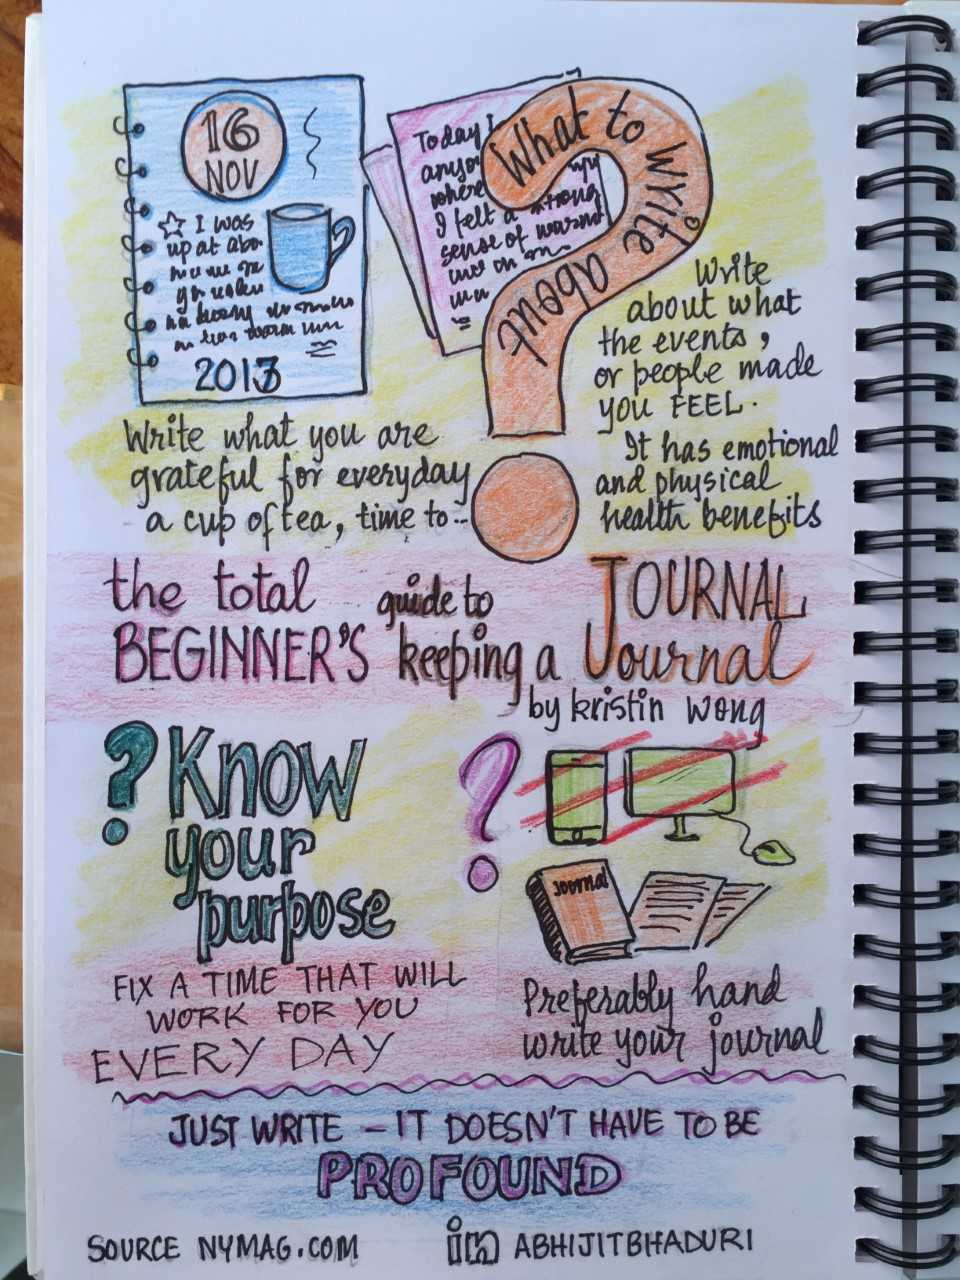 16
NOV
I was
up at
2013
Today I
where
I felt a strong
sense of
What to write about
Write
about what
the events,
or people made
you FEEL.
It has emotional
and physical
health benefits
Write what you are
grateful for everyday
a cup of tea, time to..
the total
BEGINNER'S
guide to
keeping a
JOURNAL
Journal
by kristin wong
? Know
your
purpose
FIX A TIME THAT WILL
WORK FOR YOU
EVERY DAY
?
Journal
Preferably hand
write your journal
JUST WRITE – IT DOESN'T HAVE TO BE
PROFOUND
SOURCE NYMAG.COM
in ABHIJITBHADURI